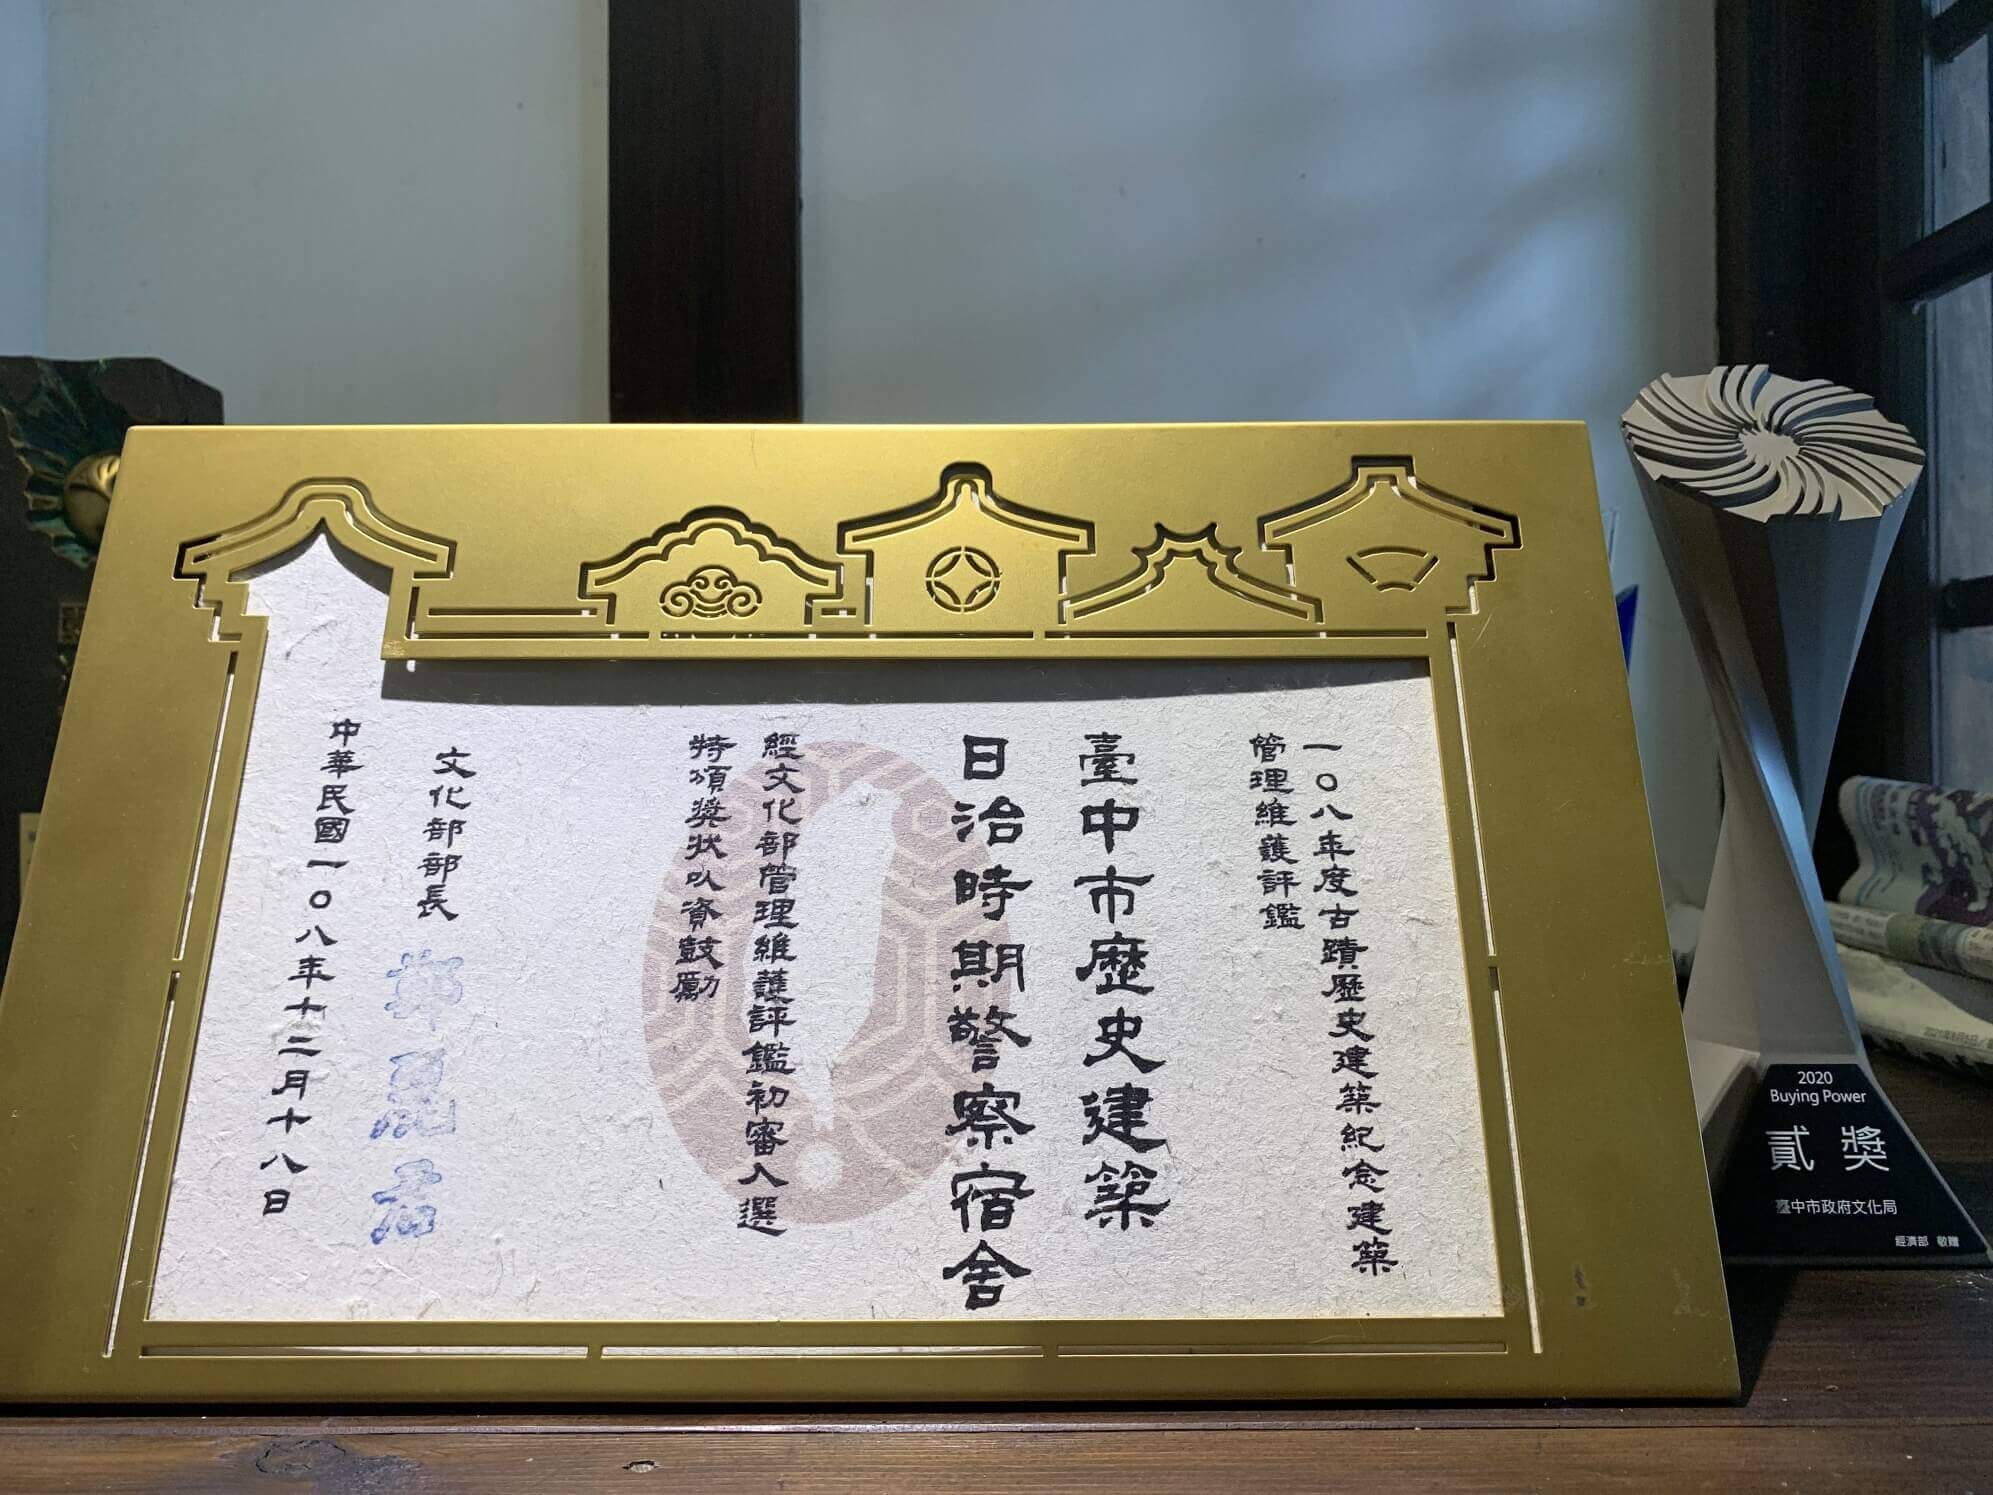 一〇八年度古蹟歷史建築紀念建築
管理維護評鑑
臺中市歷史建築
日治時期警察宿舍
經文化部管理維護評鑑初審入選
特頒獎狀以資鼓勵
文化部部長
鄭麗君
中華民國一〇八年十二月十八日
2020
Buying Power
貳獎
臺中市政府文化局
經濟部 敬贈